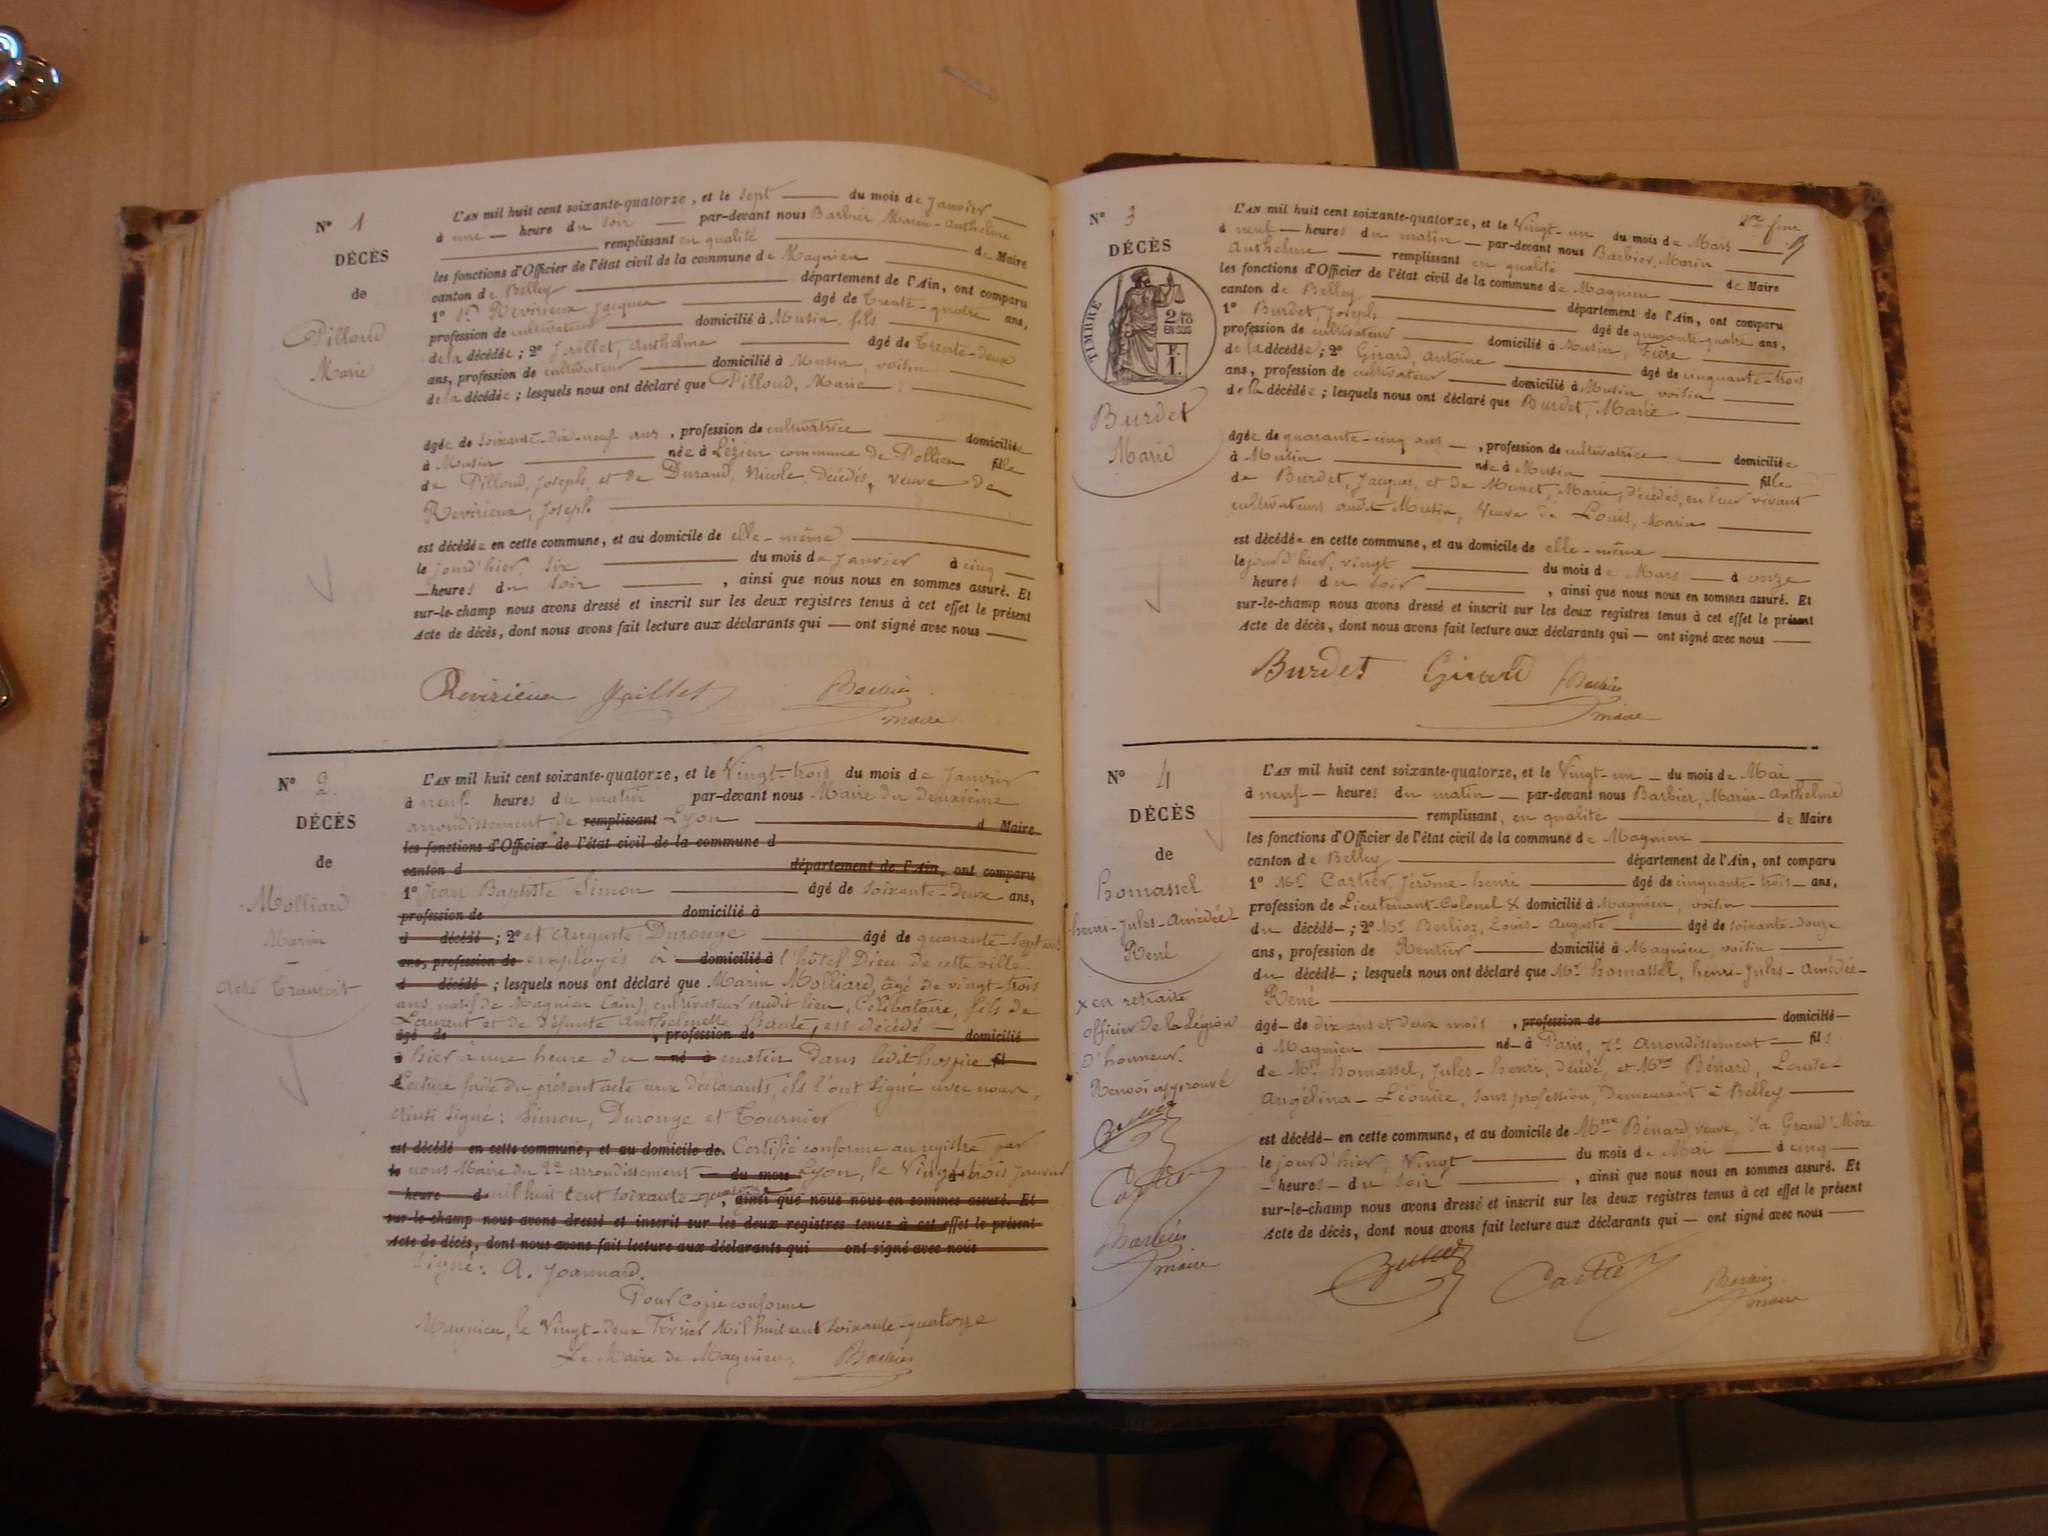 N° 1
DÉCÈS
de
Pilloud
Marie
L'AN mil huit cent soixante-quatorze, et le sept du mois de Janvier
à une heure du soir par-devant nous Barbier Marin-Anthelme
remplissant en qualité de Maire
les fonctions d'Officier de l'état civil de la commune de Magnieu
canton de Belley département de l'Ain, ont comparu
1° Revirieux, Jacques âgé de Trente-quatre ans,
profession de cultivateur domicilié à Musin, fils
de la décédée; 2° Jaillet, Anthelme âgé de Trente-deux
ans, profession de cultivateur domicilié à Musin, voisin
de la décédée; lesquels nous ont déclaré que Pilloud, Marie
âgée de soixante-dix-neuf ans, profession de cultivatrice domiciliée
à Musin née à Lézieu, commune de Pollieu fille
de Pilloud, Joseph, et de Durand, Nicole, décédés, veuve de
Revirieux, Joseph
est décédée en cette commune, et au domicile de elle-même
le jourd'hier, six du mois de Janvier à cinq
heures du soir, ainsi que nous nous en sommes assuré. Et
sur-le-champ nous avons dressé et inscrit sur les deux registres tenus à cet effet le présent
Acte de décès, dont nous avons fait lecture aux déclarants qui ont signé avec nous
Revirieux Jaillet Barbier
maire
N° 2
DÉCÈS
de
Molliard
Marin
Acte Transcrit
L'AN mil huit cent soixante-quatorze, et le Vingt-trois du mois de Janvier
à neuf heures du matin par-devant nous Maire du deuxième
arrondissement de remplissant Lyon d Maire
les fonctions d'Officier de l'état civil de la commune d
canton d département de l'Ain, ont comparu
1° Jean Baptiste Simon âgé de soixante-deux ans,
profession de domicilié à
d décédé; 2° et Auguste Durouge âgé de quarante-sept ans
ans, profession de employés à domicilié à l'hôtel Dieu de cette ville
d décédé; lesquels nous ont déclaré que Marin Molliard, âgé de vingt-trois
ans, natif de Magnieu (ain), cultivateur audit lieu, Célibataire, fils de
Laurent et de défunte Anthelmette, est décédé
âgé de, profession de domicilié
à hier à une heure du né à matin dans ledit hospice fil
Lecture faite du présent acte aux déclarants, ils l'ont signé avec nous,
Ainsi signé: Simon, Durouge et Tournier
est décédé en cette commune, et au domicile de Certifié conforme au registre par
le nous Maire du 2e arrondissement du mois Lyon, le Vingt-trois Janvier
heure d mil huit cent soixante-quatorze, ainsi que nous nous en sommes assuré. Et
sur-le-champ nous avons dressé et inscrit sur les deux registres tenus à cet effet le présent
Acte de décès, dont nous avons fait lecture aux déclarants qui ont signé avec nous
Signé: A. Joannard.
Pour Copie conforme
Magnieu, le Vingt-deux Février Mil huit cent soixante-quatorze
Le Maire de Magnieu, Barbier
N° 3
DÉCÈS
TIMBRE
2/10
EN SUS
F.
1.
Burdet
Marie
L'AN mil huit cent soixante-quatorze, et le Vingt-un du mois de Mars
à neuf heures du matin par-devant nous Barbier, Marin
Anthelme remplissant en qualité de Maire
les fonctions d'Officier de l'état civil de la commune de Magnieu
canton de Belley département de l'Ain, ont comparu
1° Burdet, Joseph âgé de quarante-quatre ans,
profession de cultivateur domicilié à Musin, Frère
de la décédée; 2° Girard, Antoine âgé de cinquante-trois
ans, profession de cultivateur domicilié à Musin, voisin
de la décédée; lesquels nous ont déclaré que Burdet, Marie
âgée de quarante-cinq ans, profession de cultivatrice domiciliée
à Musin née à Musin fille
de Burdet, Jacques, et de Munet, Marie, décédés, en leur vivant
cultivateurs audit Musin, Veuve de Louis, Marin
est décédée en cette commune, et au domicile de elle-même
le jourd'hier, vingt du mois de Mars à onze
heures du soir, ainsi que nous nous en sommes assuré. Et
sur-le-champ nous avons dressé et inscrit sur les deux registres tenus à cet effet le présent
Acte de décès, dont nous avons fait lecture aux déclarants qui ont signé avec nous
Burdet Girard Barbier
maire
N° 4
DÉCÈS
de
homassel
henri-Jules-Amédée
René
x en retraite
officier de la Légion
d'honneur.
Renvoi approuvé
Cartier
Barbier
maire
L'AN mil huit cent soixante-quatorze, et le Vingt-un du mois de Mai
à neuf heures du matin par-devant nous Barbier, Marin-Anthelme
remplissant, en qualité de Maire
les fonctions d'Officier de l'état civil de la commune de Magnieu
canton de Belley département de l'Ain, ont comparu
1° Mr Cartier, Jérôme-henri âgé de cinquante-trois ans,
profession de Lieutenant-Colonel x domicilié à Magnieu, voisin
du décédé; 2° Mr Berlioz, Louis-Auguste âgé de soixante-douze
ans, profession de Rentier domicilié à Magnieu, voisin
du décédé; lesquels nous ont déclaré que Mr homassel, henri-Jules-Amédée-
René
âgé de dix ans et deux mois, profession de domicilié
à Magnieu né à Paris, 7e Arrondissement fils
de Mr homassel, Jules-henri, décédé, et Mme Bénard, Louise-
Angélina-Léonice, sans profession, Demeurant à Belley
est décédé en cette commune, et au domicile de Mme Bénard, veuve, sa Grand'Mère
le jourd'hier, Vingt du mois de Mai à cinq
heures du soir, ainsi que nous nous en sommes assuré. Et
sur-le-champ nous avons dressé et inscrit sur les deux registres tenus à cet effet le présent
Acte de décès, dont nous avons fait lecture aux déclarants qui ont signé avec nous
Cartier Barbier
maire